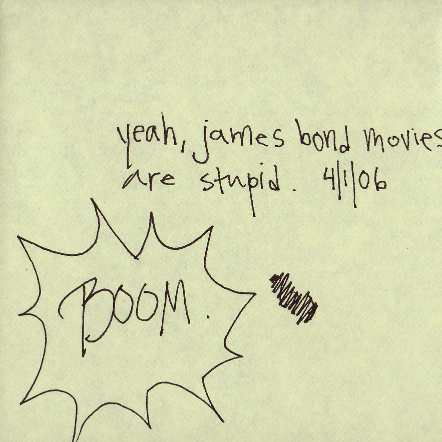 yeah, james bond movies
are stupid. 4/1/06
BOOM.